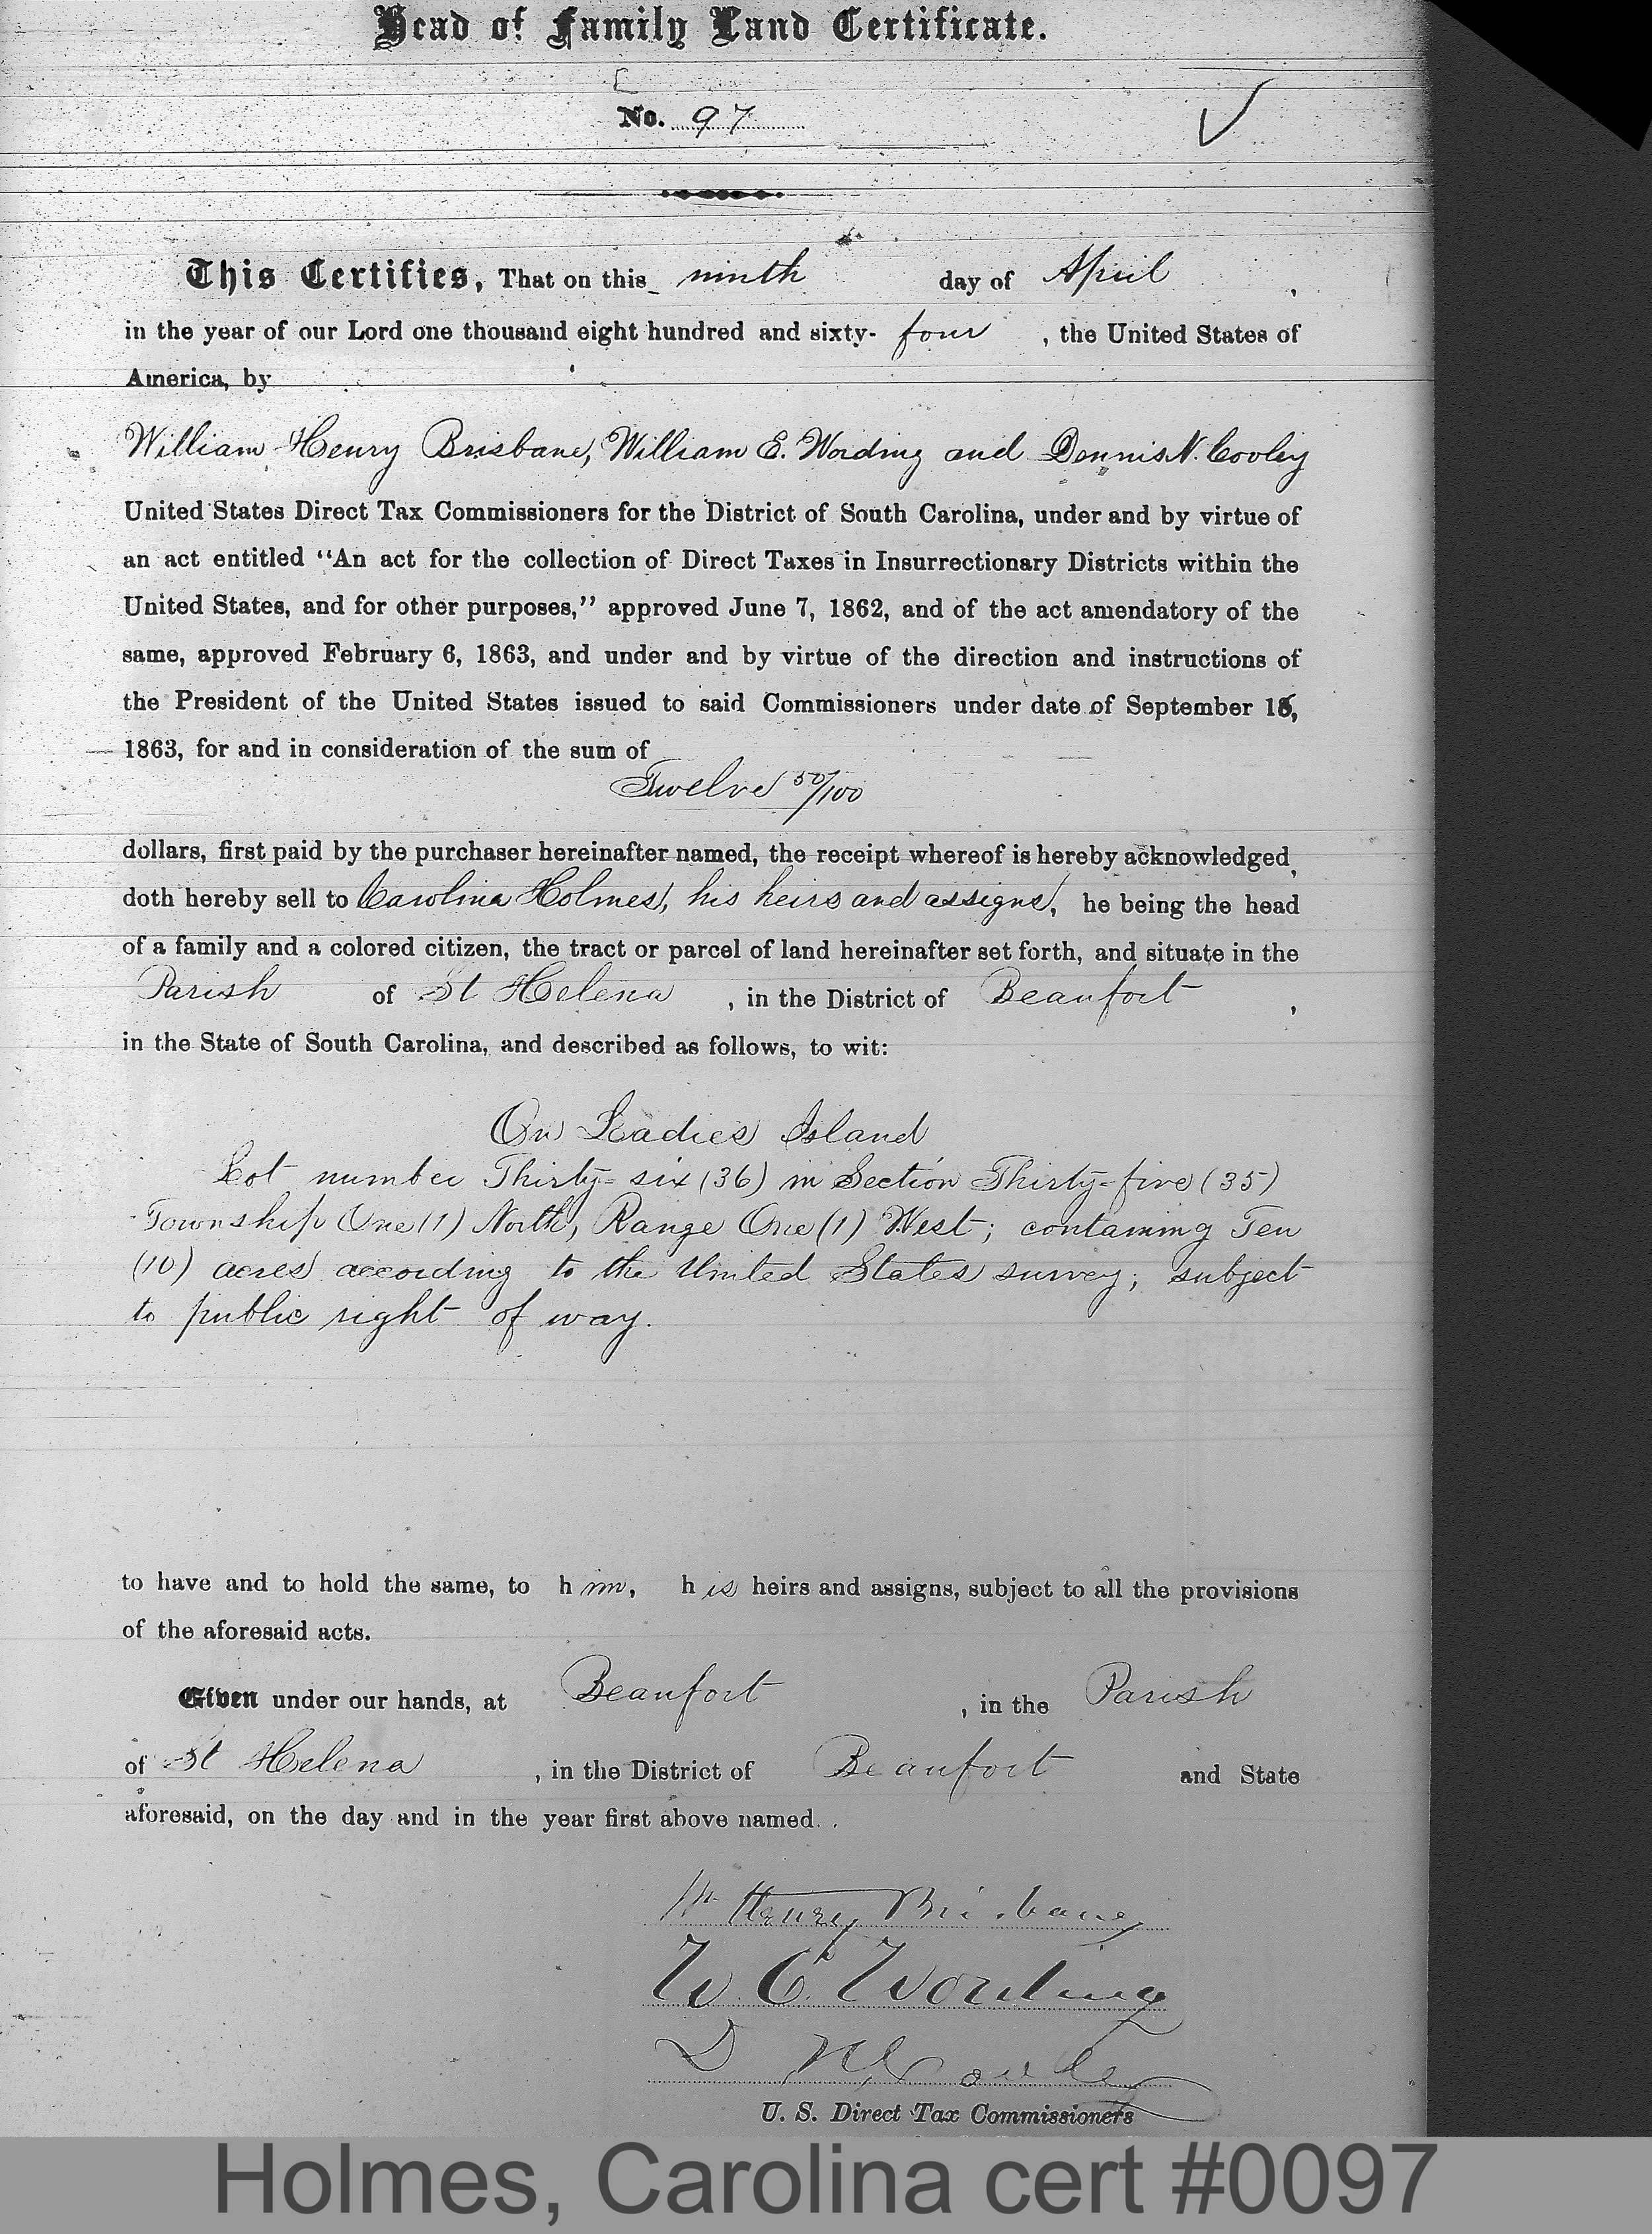 Head of Family Land Certificate.
No. 97
This Certifies, That on this ninth day of April,
in the year of our Lord one thousand eight hundred and sixty-four, the United States of
America, by
William Henry Brisbane, William E. Wording and Dennis N. Cooley
United States Direct Tax Commissioners for the District of South Carolina, under and by virtue of
an act entitled "An act for the collection of Direct Taxes in Insurrectionary Districts within the
United States, and for other purposes," approved June 7, 1862, and of the act amendatory of the
same, approved February 6, 1863, and under and by virtue of the direction and instructions of
the President of the United States issued to said Commissioners under date of September
1863, for and in consideration of the sum of
Twelve 50/100
dollars, first paid by the purchaser hereinafter named, the receipt whereof is hereby acknowledged,
doth hereby sell to Carolina Holmes, his heirs and assigns, he being the head
of a family and a colored citizen, the tract or parcel of land hereinafter set forth, and situate in the
Parish of St Helena, in the District of Beaufort,
in the State of South Carolina, and described as follows, to wit:
On Ladies Island
Lot number Thirty-six (36) in Section Thirty-five (35)
Township One (1) North, Range One (1) West; containing Ten
(10) acres according to the United States survey; subject
to public right of way.
to have and to hold the same, to him, his heirs and assigns, subject to all the provisions
of the aforesaid acts.
Given under our hands, at Beaufort, in the Parish
of St Helena, in the District of Beaufort and State
aforesaid, on the day and in the year first above named.
Wm Henry Brisbane
W. E. Wording
D N Cooley
U. S. Direct Tax Commissioners
Holmes, Carolina cert #0097